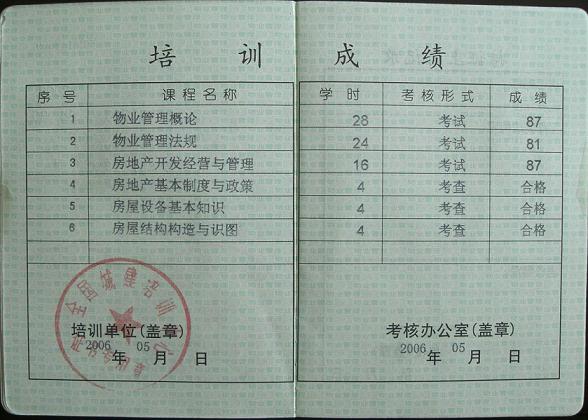 培训成绩
序号 课程名称 学时 考核形式 成绩
1 物业管理概论 28 考试 87
2 物业管理法规 24 考试 81
3 房地产开发经营与管理 16 考试 87
4 房地产基本制度与政策 4 考查 合格
5 房屋设备基本知识 4 考查 合格
6 房屋结构构造与识图 4 考查 合格
全国城建培训中心
证书专用章
培训单位(盖章) 考核办公室(盖章)
2006年05月 日 2006年05月 日